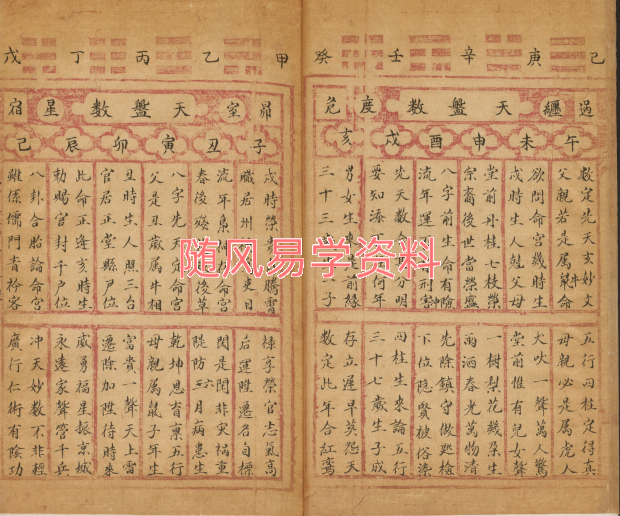 己 庚 辛 壬 癸
過 纏 天盤數 度 危
午 未 申 酉 戌 亥
數定先天玄妙文
父親若是屬
欲問命宮幾時生
此時生人尅父母
堂前丹桂七枝榮
宗裔後世當榮盛
八字前生命有險
流年運
先天數命
要知
男女生來
三十三
五行四柱定得真
母親必是屬虎人
犬吠一聲萬人驚
堂前惟有兒女聲
一樹梨花幾朵生
雨洒春光萬物清
先除鎮守做巡檢
下位隐賢被俗染
四柱生來論五行
三十七歲生子成
存立遲早莫怨天
數定此年合紅鸞
甲 乙 丙 丁 戊
昴 室 天盤數 星 宿
子 丑 寅 卯 辰 己
職居州
流年
春後
八字先天定命宮
父是丑歲屬牛相
丑時生人照三台
官居正堂縣尸位
此命正逢亥時生
勅賜官封千户位
八卦合胎論命宮
雖係儒門青衿客
祿享榮官志氣高
后運陞遷名自標
閗是閗非灾禍重
隄防三六月病患生
乾坤恩育禀五行
母親屬鼠子年生
富貴一聲天上雷
遷除加陞待時來
威勇福星振京城
永遠家聲管千兵
冲天妙數不非輕
廣行仁術有陰功
随风易学资料